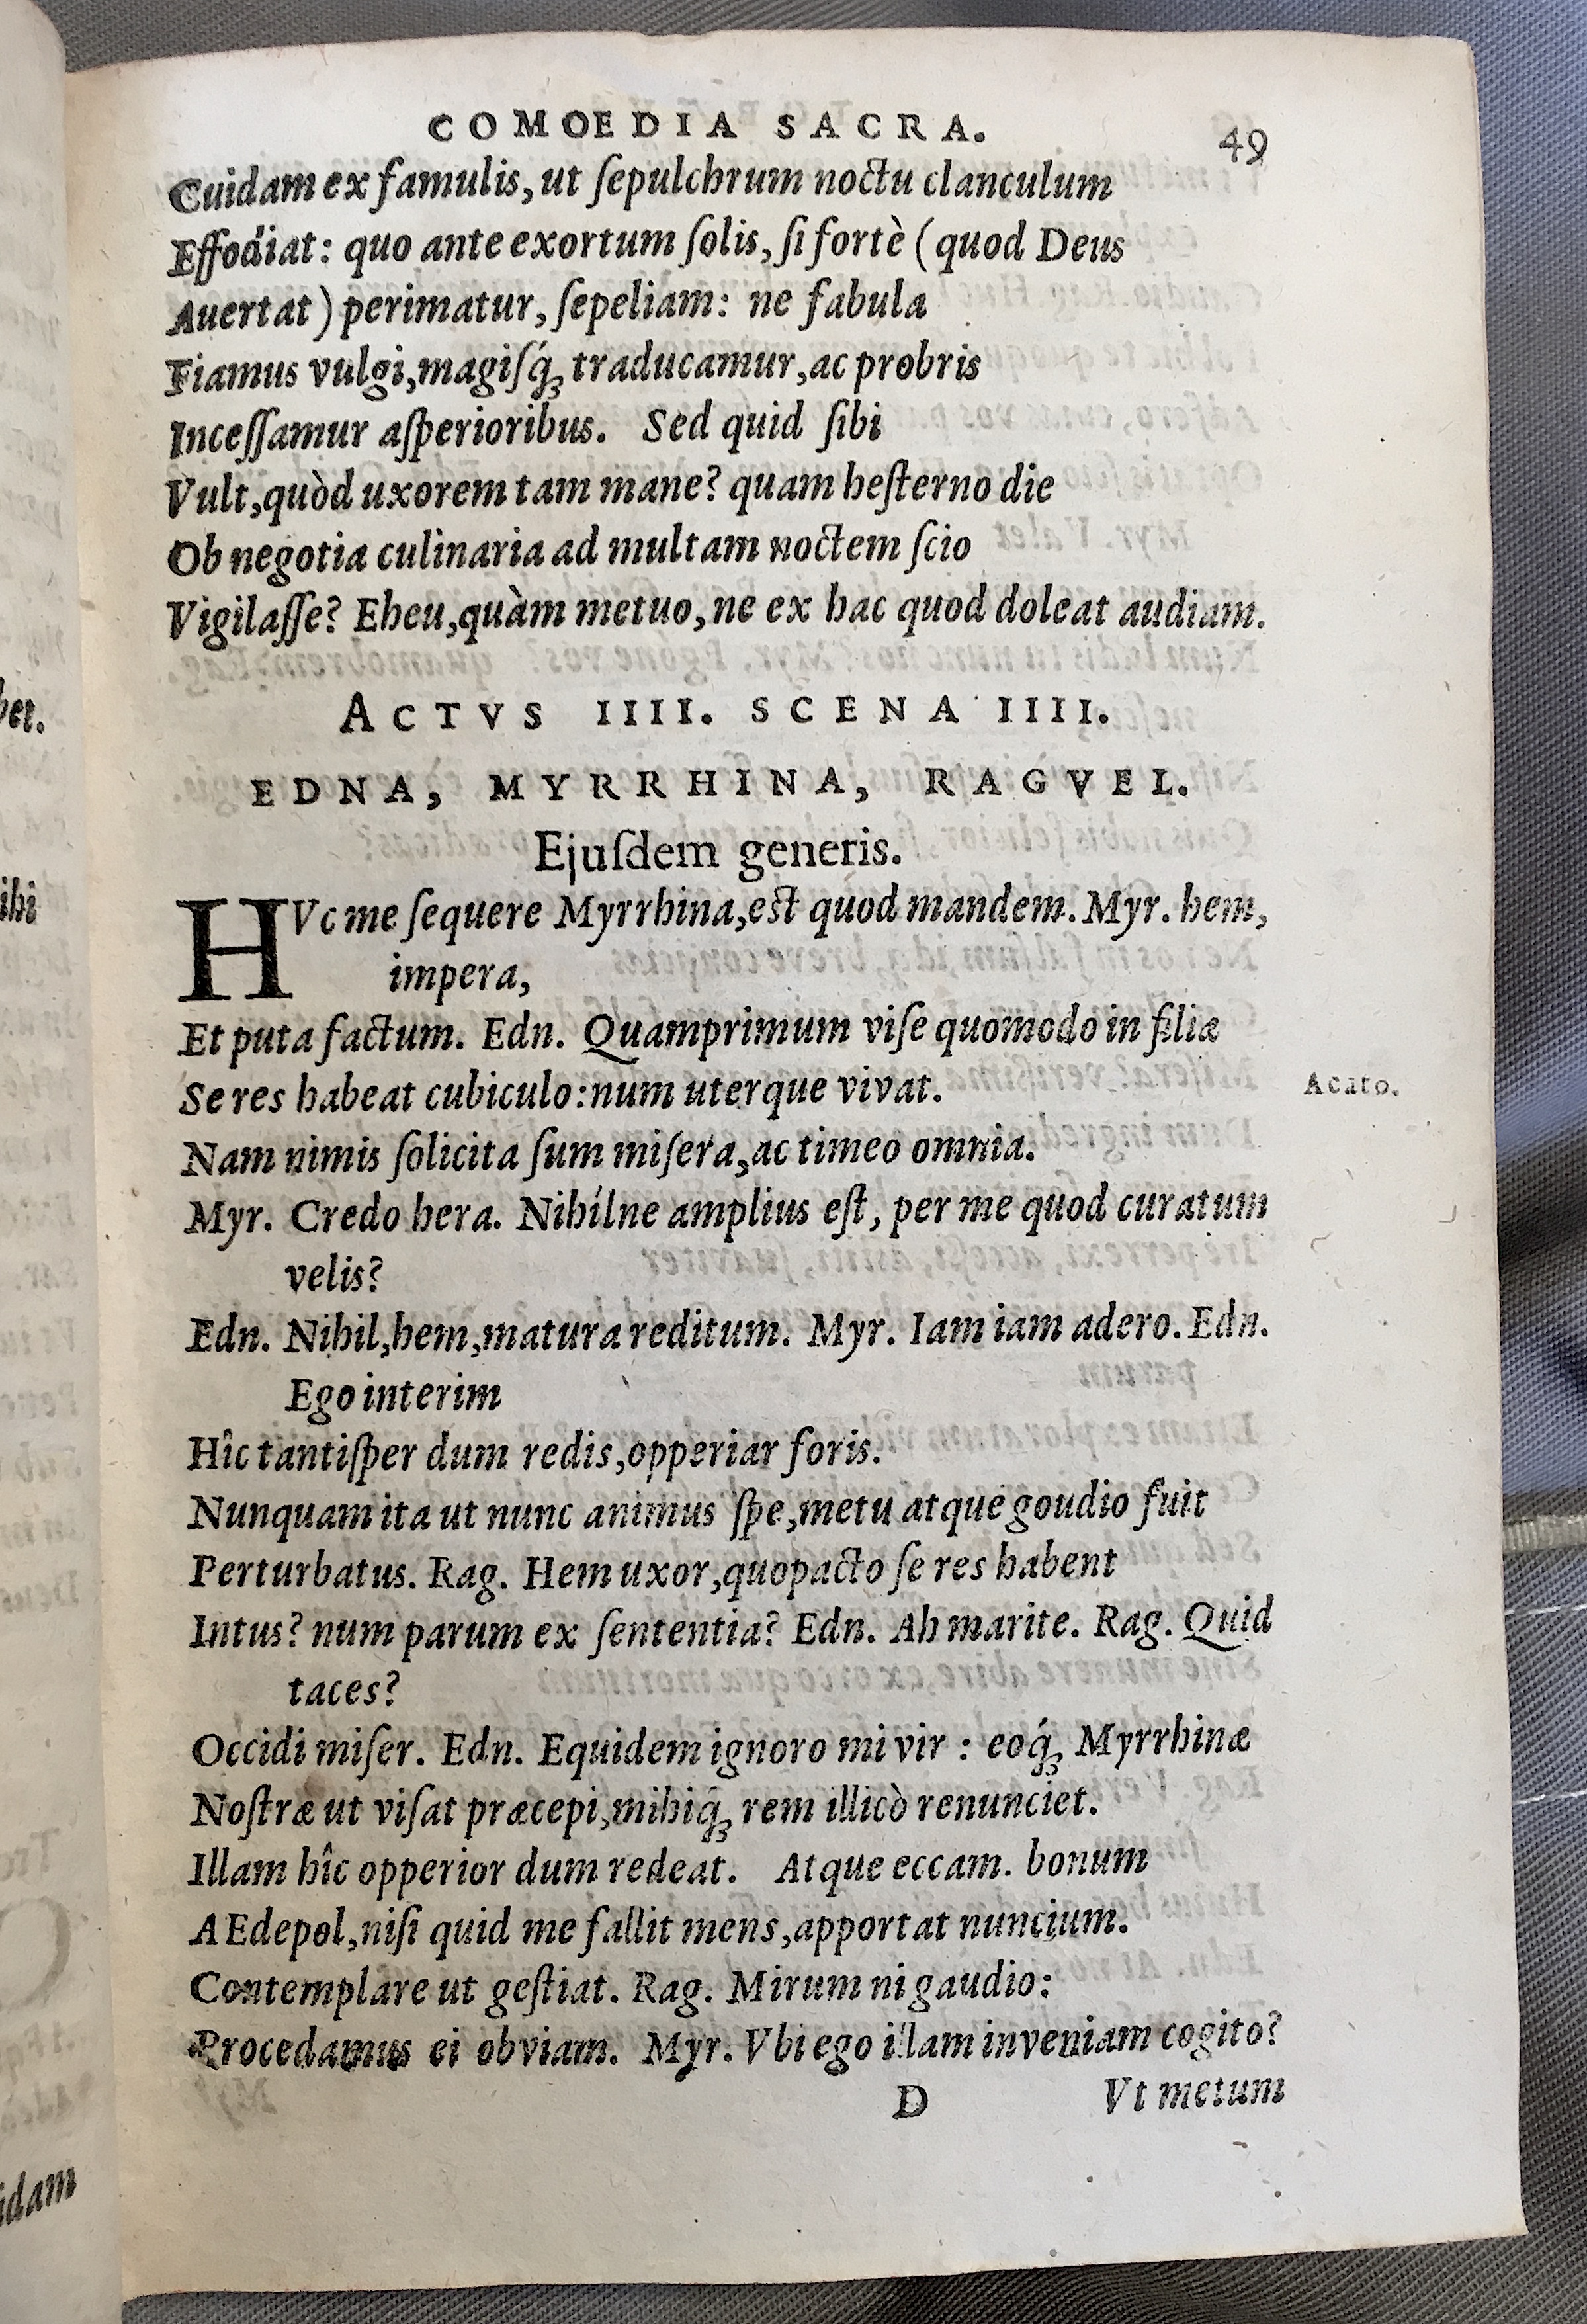 COMOEDIA SACRA. 49
Cuidam ex famulis, ut ſepulchrum noctu clanculum
Effodiat: quo ante exortum ſolis, ſi fortè (quod Deus
Auertat) perimatur, ſepeliam: ne fabula
Fiamus vulgi, magiſq́ꝫ traducamur, ac probris
Inceſſamur aſperioribus. Sed quid ſibi
Vult, quòd uxorem tam mane? quam heſterno die
Ob negotia culinaria ad multam noctem ſcio
Vigilaſſe? Eheu, quàm metuo, ne ex hac quod doleat audiam.
ACTVS IIII. SCENA IIII.
EDNA, MYRRHINA, RAGVEL.
Ejuſdem generis.
HVc me ſequere Myrrhina, eſt quod mandem. Myr. hem,
impera,
Et puta factum. Edn. Quamprimum viſe quomodo in filiæ
Se res habeat cubiculo: num uterque vivat. Acato.
Nam nimis ſolicita ſum miſera, ac timeo omnia.
Myr. Credo hera. Nihílne amplius eſt, per me quod curatum
velis?
Edn. Nihil, hem, matura reditum. Myr. Iam iam adero. Edn.
Ego interim
Hîc tantiſper dum redis, opperiar foris.
Nunquam ita ut nunc animus ſpe, metu atque goudio fuit
Perturbatus. Rag. Hem uxor, quopacto ſe res habent
Intus? num parum ex ſententia? Edn. Ah marite. Rag. Quid
taces?
Occidi miſer. Edn. Equidem ignoro mi vir : eoq́ꝫ Myrrhinæ
Noſtræ ut viſat præcepi, mihiq́ꝫ rem illicò renunciet.
Illam hîc opperior dum redeat. Atque eccam. bonum
AEdepol, niſi quid me fallit mens, apportat nuncium.
Contemplare ut geſtiat. Rag. Mirum ni gaudio:
Procedamus ei obviam. Myr. Vbi ego illam inveniam cogito?
D Vt metum